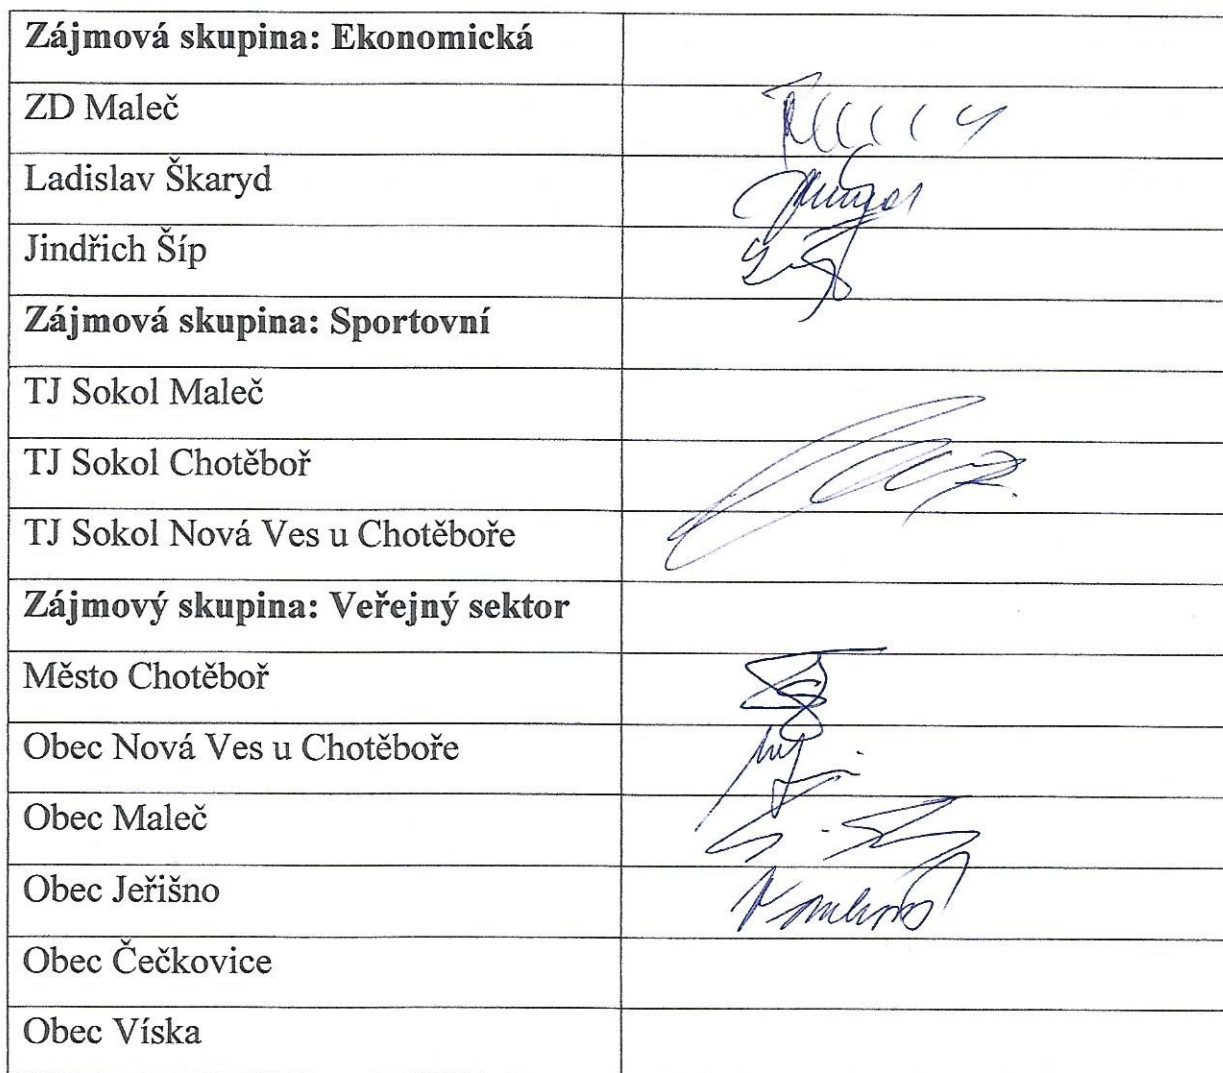 Zájmová skupina: Ekonomická
ZD Maleč
Ladislav Škaryd
Jindřich Šíp
Zájmová skupina: Sportovní
TJ Sokol Maleč
TJ Sokol Chotěboř
TJ Sokol Nová Ves u Chotěboře
Zájmový skupina: Veřejný sektor
Město Chotěboř
Obec Nová Ves u Chotěboře
Obec Maleč
Obec Jeřišno
Obec Čečkovice
Obec Víska